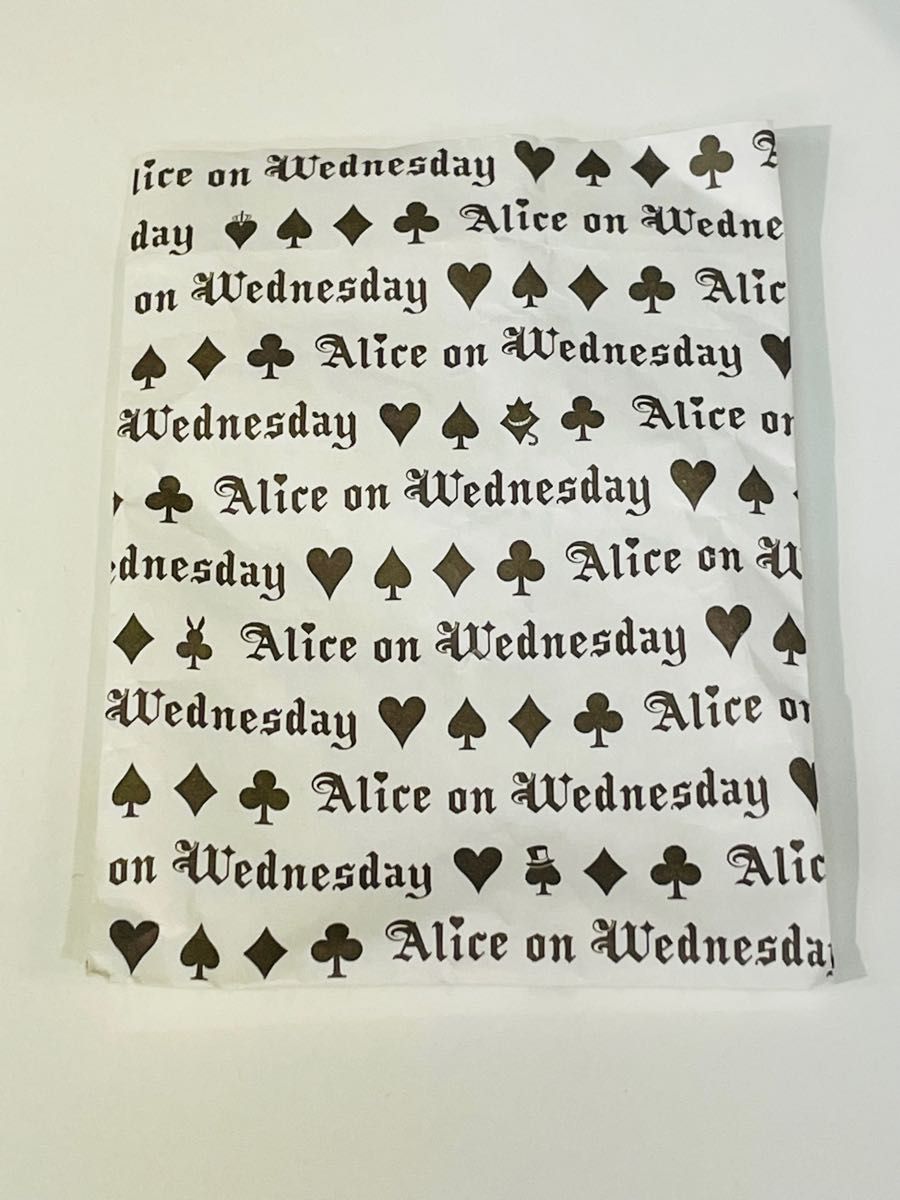 lice on Wednesday
day Alice on Wedne
on Wednesday Alic
Alice on Wednesday
Wednesday Alice on
Alice on Wednesday
ednesday Alice on W
Alice on Wednesday
Wednesday Alice on
Alice on Wednesday
on Wednesday Alic
Alice on Wednesday